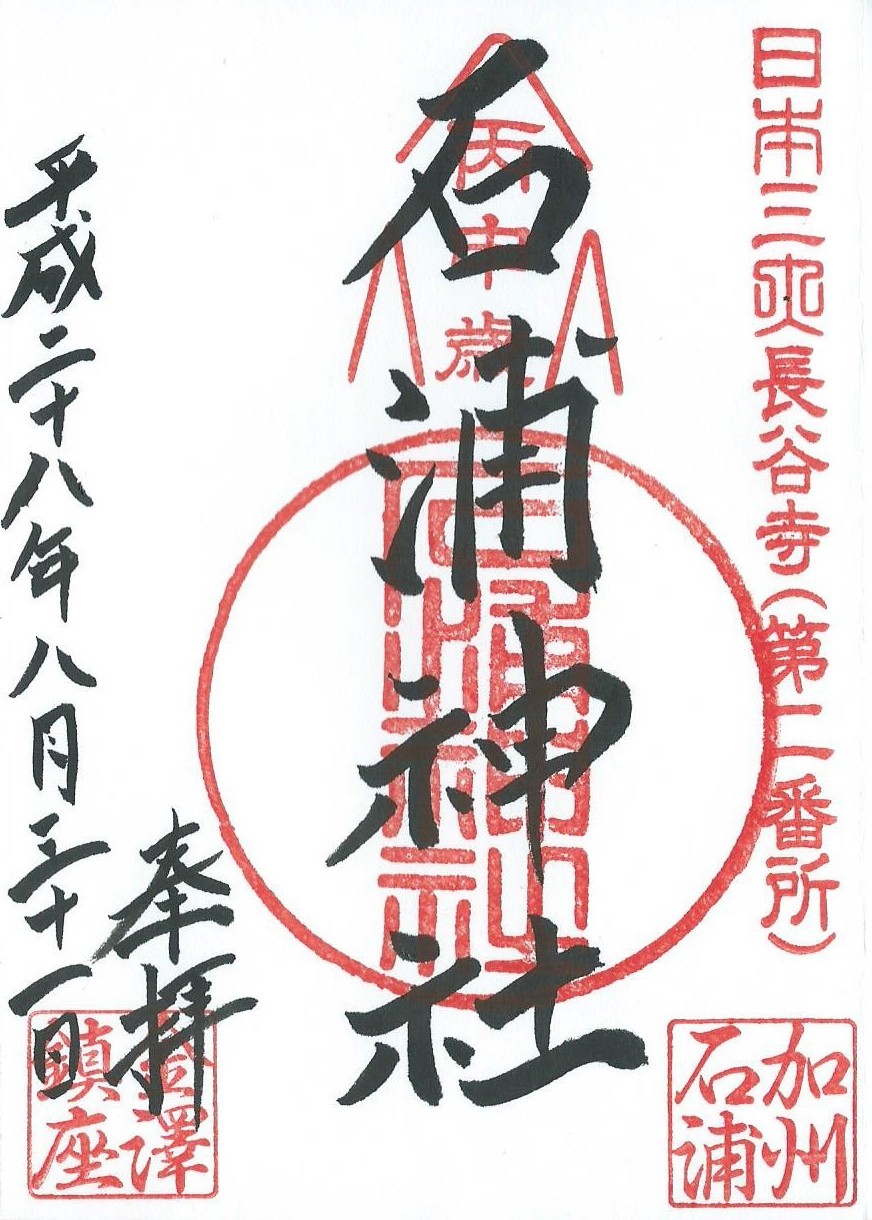 日本三大長谷寺(第二番所)
加州
石浦
丙申歳
石浦神社
奉拝
平成二十八年八月三十一日
金澤
鎮座